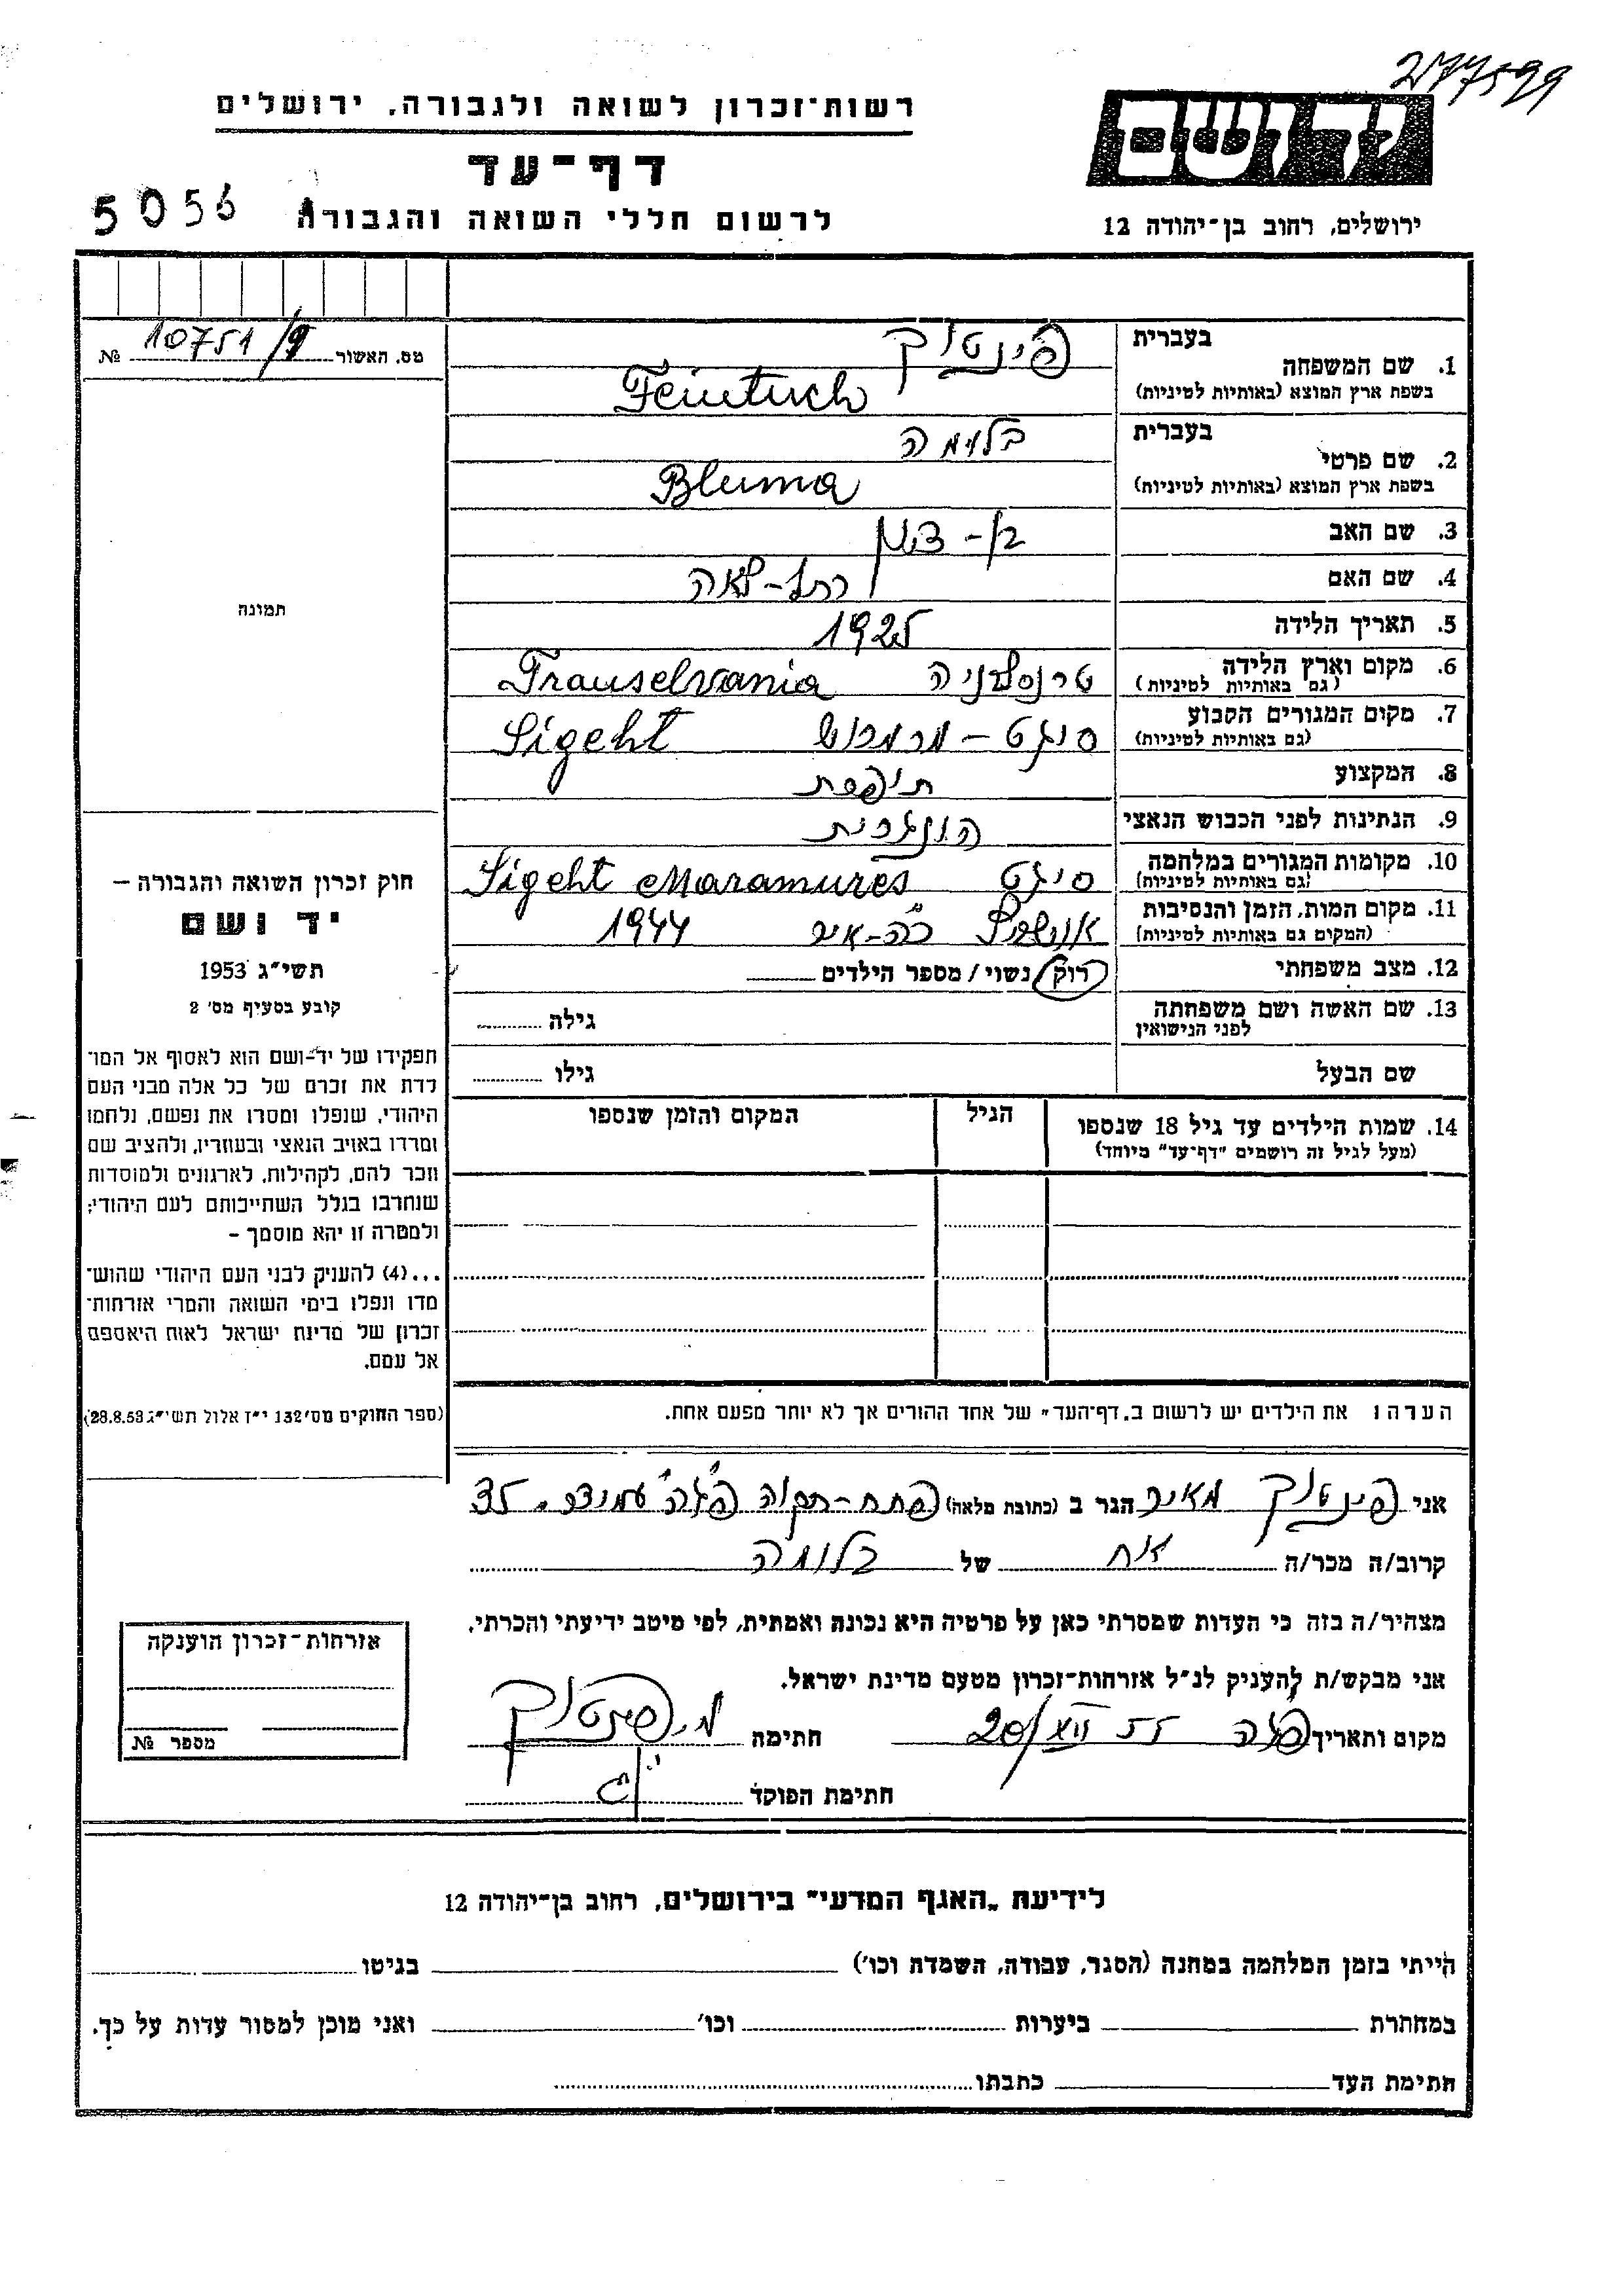 277599
רשות־זכרון לשואה ולגבורה, ירושלים
יד ושם
דף־עד
5056
לרשום חללי השואה והגבורה
ירושלים, רחוב בן־יהודה 12
מס. האשור 10751/9 №
בעברית פינטוך
1. שם המשפחה
בשפת ארץ המוצא (באותיות לטיניות) Feintuch
בעברית בלומה
2. שם פרטי
בשפת ארץ המוצא (באותיות לטיניות) Bluma
3. שם האב בן-ציון
4. שם האם רחל-לאה
5. תאריך הלידה 1925
6. מקום וארץ הלידה טרנסלבניה Transelvania
(גם באותיות לטיניות)
7. מקום המגורים הקבוע סיגט - מרמרוש Sigeht
(גם באותיות לטיניות)
8. המקצוע תופרת
9. הנתינות לפני הכבוש הנאצי הונגרית
10. מקומות המגורים במלחמה סיגט Sigeht Maramures
(גם באותיות לטיניות)
11. מקום המות, הזמן והנסיבות אושויץ כ"ה-אייר 1944
(המקום גם באותיות לטיניות)
12. מצב משפחתי רוק/ נשוי / מספר הילדים
13. שם האשה ושם משפחתה גילה
לפני הנישואין
שם הבעל גילו
14. שמות הילדים עד גיל 18 שנספו הגיל המקום והזמן שנספו
(מעל לגיל זה רושמים "דף־עד" מיוחד)
הערה: את הילדים יש לרשום ב„דף־העד" של אחד ההורים אך לא יותר מפעם אחת.
תמונה
חוק זכרון השואה והגבורה –
יד ושם
תשי"ג 1953
קובע בסעיף מס' 2
תפקידו של יד־ושם הוא לאסוף אל המו־
לדת את זכרם של כל אלה מבני העם
היהודי, שנפלו ומסרו את נפשם, נלחמו
ומרדו באויב הנאצי ובעוזריו, ולהציב שם
וזכר להם, לקהילות, לארגונים ולמוסדות
שנחרבו בגלל השתייכותם לעם היהודי;
ולמטרה זו יהא מוסמך –
...(4) להעניק לבני העם היהודי שהוש־
מדו ונפלו בימי השואה והמרי אזרחות־
זכרון של מדינת ישראל לאות היאספם
אל עמם.
(ספר החוקים מס' 132 י"ז אלול תשי"ג 28.8.53)
אני פינטוך מאיר הגר ב (כתובת מלאה) פתח-תקוה
קרוב/ה מכר/ה אח של בלומה
מצהיר/ה בזה כי העדות שמסרתי כאן על פרטיה היא נכונה ואמתית, לפי מיטב ידיעתי והכרתי.
אני מבקש/ת להעניק לנ"ל אזרחות־זכרון מטעם מדינת ישראל.
מקום ותאריך 20/VII 55 חתימה מ. פינטוך
חתימת הפוקד
אזרחות־זכרון הוענקה
מספר №
לידיעת „האגף המדעי" בירושלים, רחוב בן־יהודה 12
הייתי בזמן המלחמה במחנה (הסגר, עבודה, השמדה וכו') בגיטו
במחתרת ביערות וכו' ואני מוכן למסור עדות על כך.
חתימת העד כתבתו